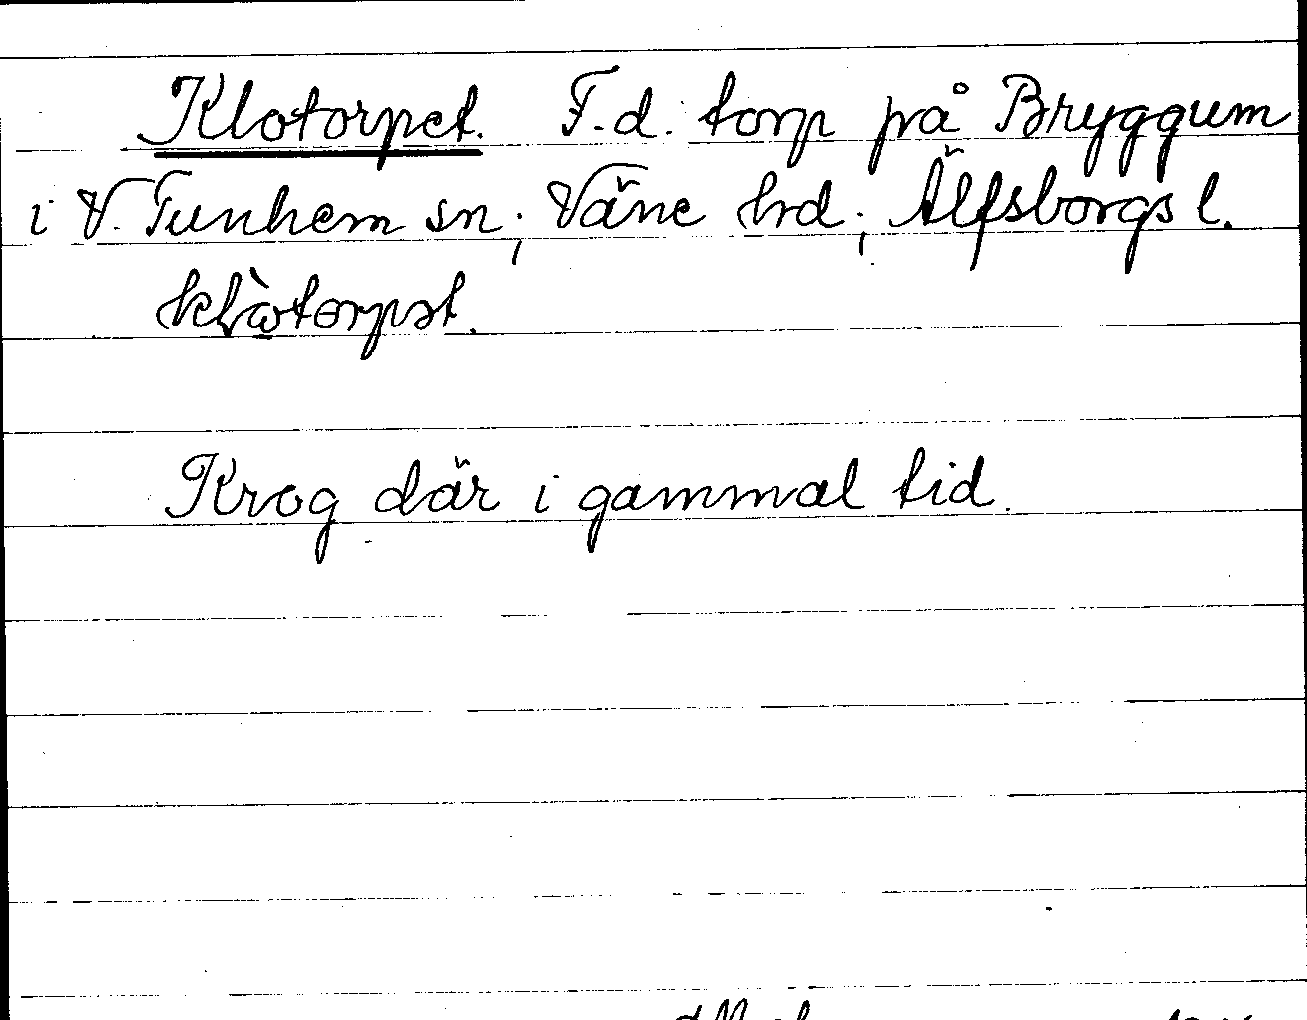 Klotorpet. F.d. torp på Bryggum
i V. Tunhem sn; Väne hrd; Älfsborgs l.
Krog där i gammal tid.